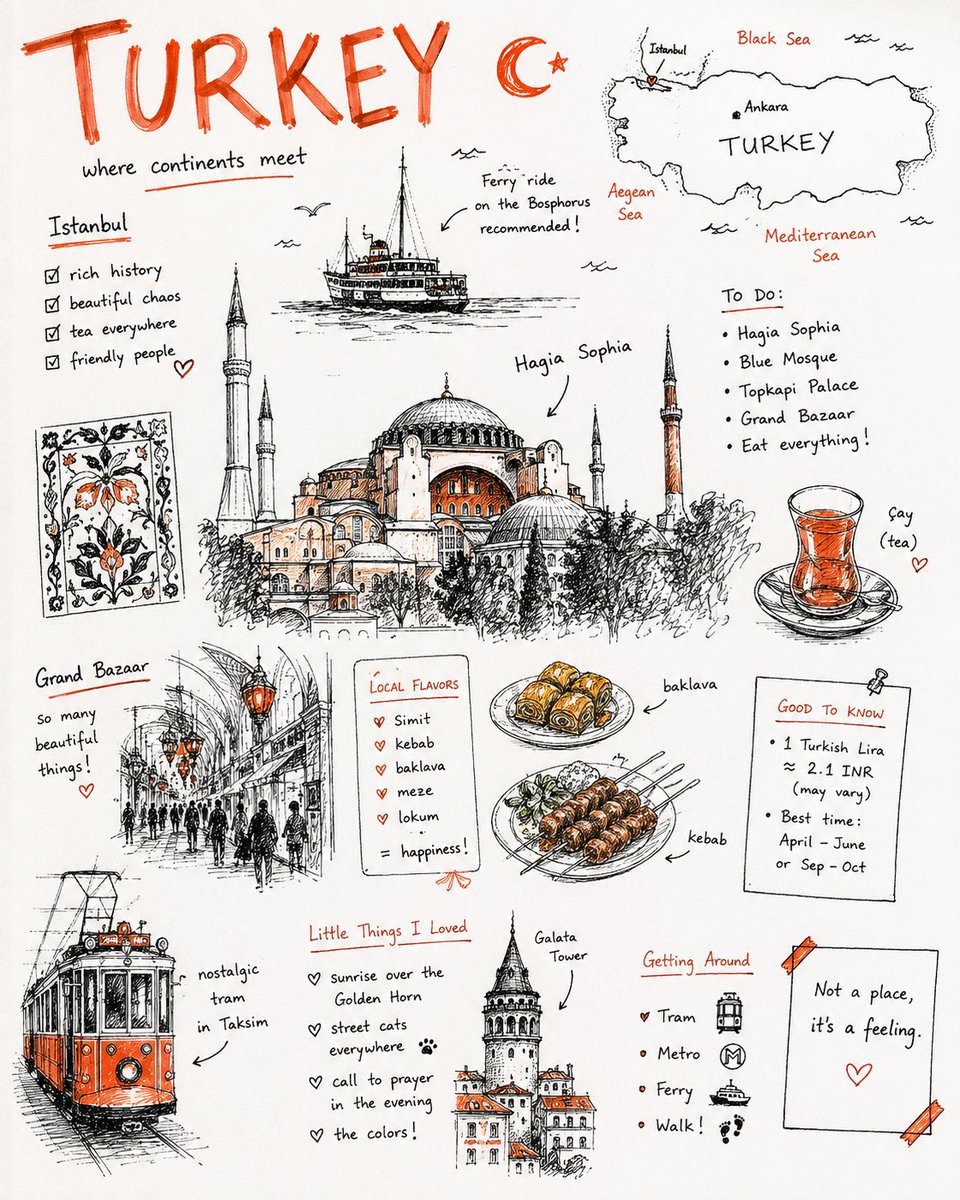 TURKEY
where continents meet
Istanbul
Black Sea
Ankara
TURKEY
Aegean
Sea
Mediterranean
Sea
Ferry ride
on the Bosphorus
recommended!
Istanbul
☑ rich history
☑ beautiful chaos
☑ tea everywhere
☑ friendly people
Hagia Sophia
To Do:
• Hagia Sophia
• Blue Mosque
• Topkapi Palace
• Grand Bazaar
• Eat everything!
çay
(tea)
Grand Bazaar
so many
beautiful
things!
Local Flavors
Simit
kebab
baklava
meze
lokum
= happiness!
baklava
kebab
Good To Know
• 1 Turkish Lira
≈ 2.1 INR
(may vary)
• Best time:
April - June
or Sep - Oct
nostalgic
tram
in Taksim
Little Things I Loved
sunrise over the
Golden Horn
street cats
everywhere
call to prayer
in the evening
the colors!
Galata
Tower
Getting Around
Tram
Metro
M
Ferry
Walk!
Not a place,
it's a feeling.